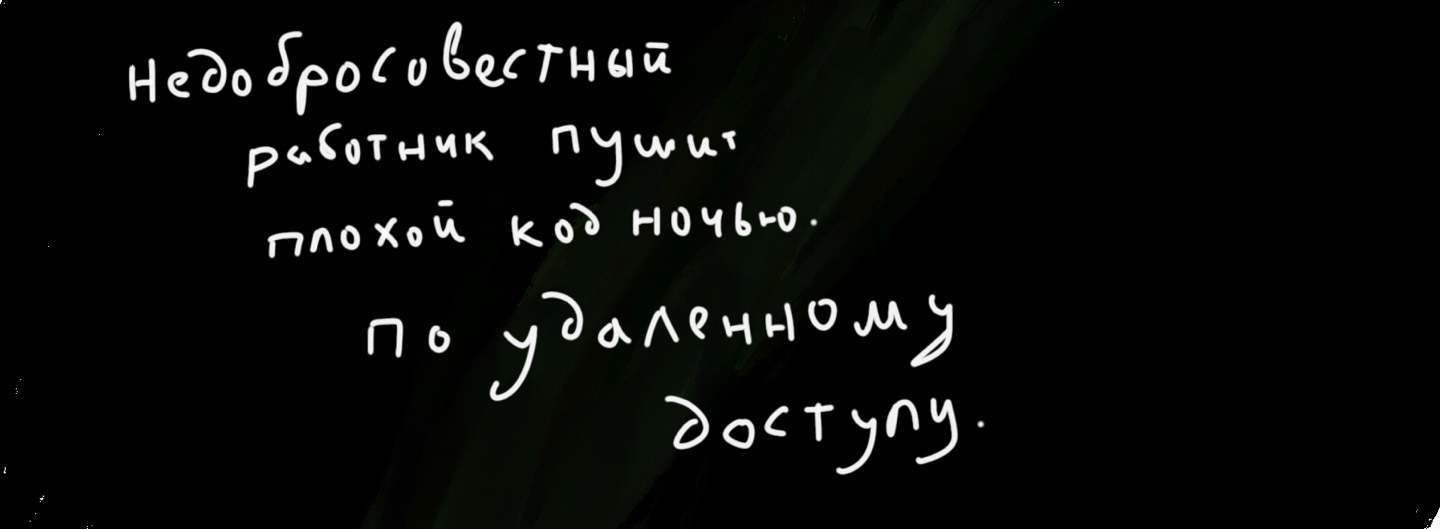 Недобросовестный
работник пушит
плохой код ночью.
по удаленному
доступу.